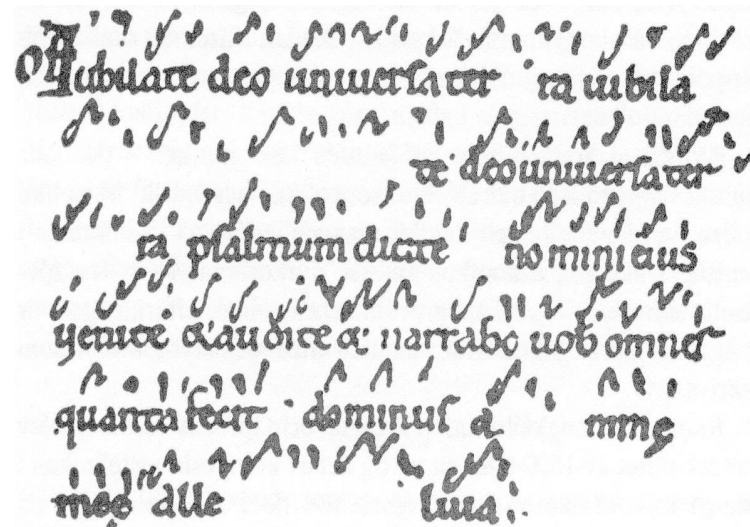 Of Iubilate deo universa ter ra iubila
te deo universa ter
ra psalmum dicite nomini eius
venite & audite & narrabo uob omnes
quanta fecit dominus a nimę
meę alle luia.